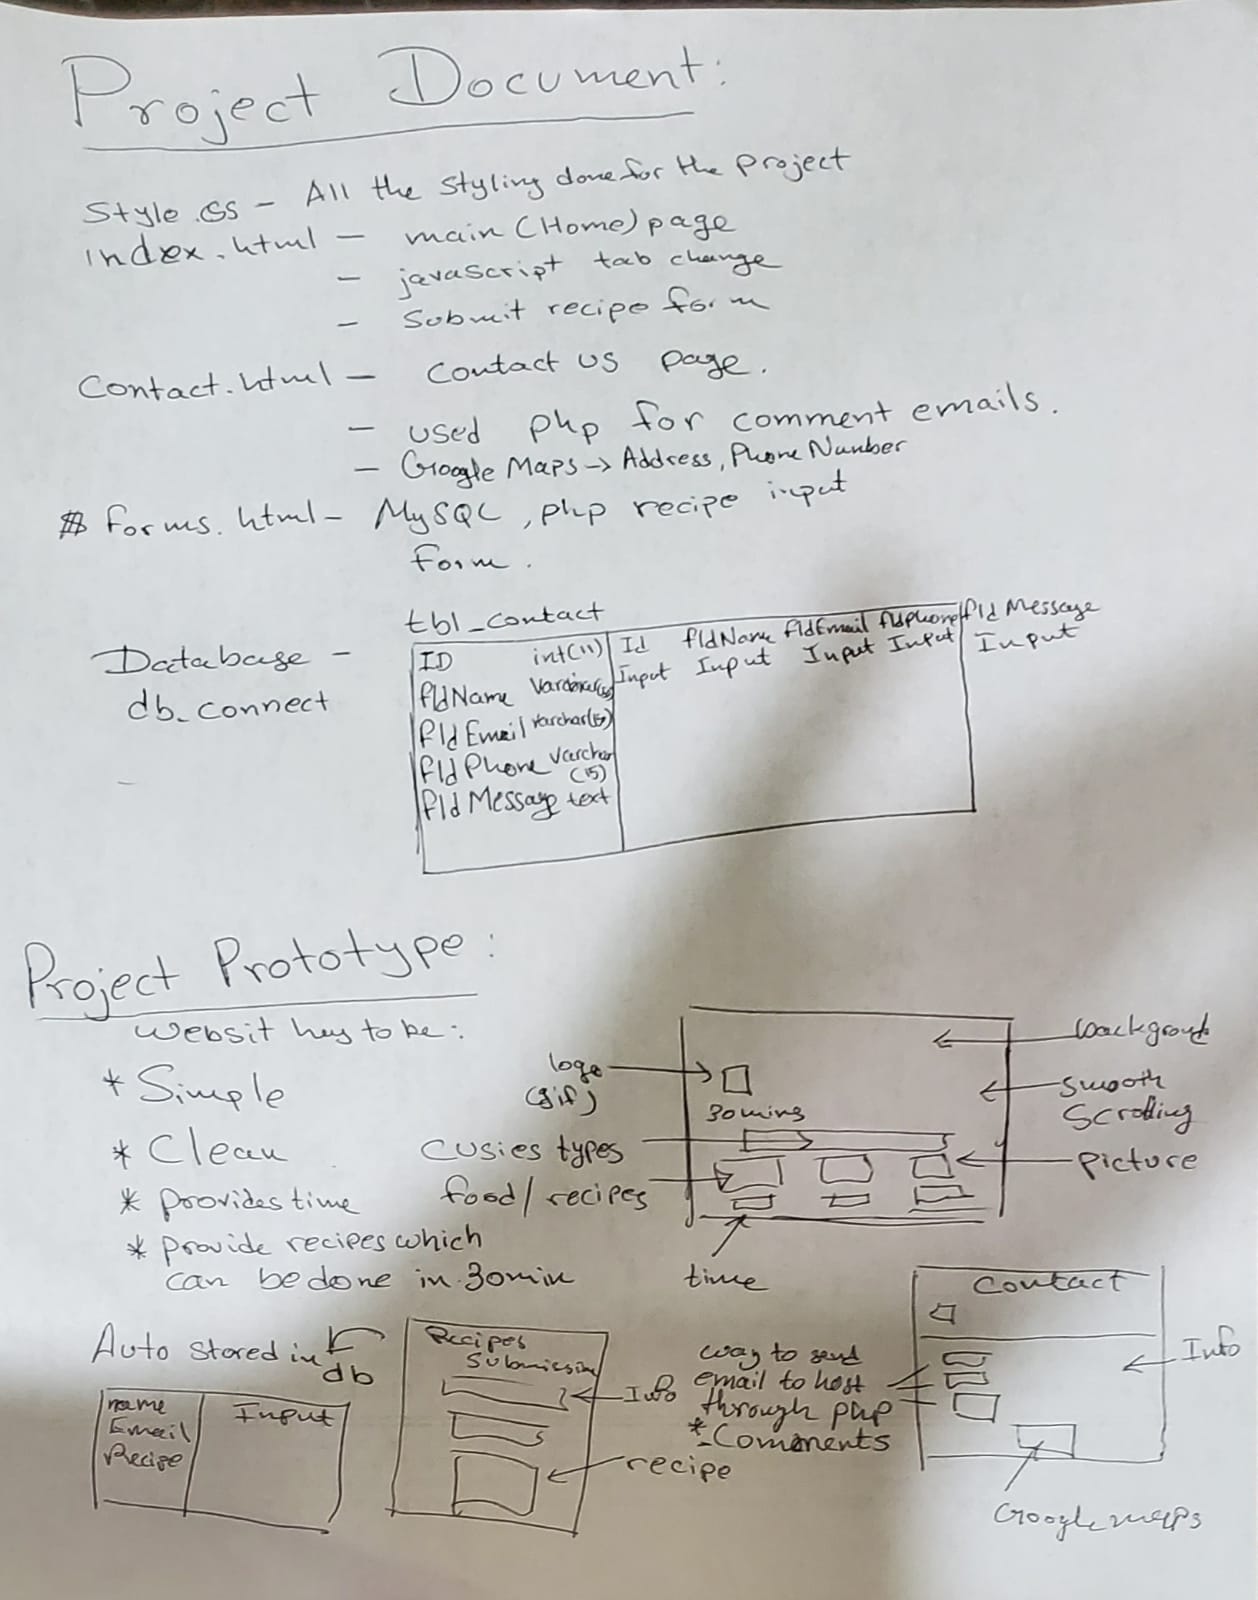 Project Document:
Style.css - All the styling done for the project
Index.html - main (Home) page
- javascript tab change
- Submit recipe form
Contact.html - Contact us page.
- used php for comment emails.
- Google Maps -> Address, Phone Number
forms.html - MySQL, php recipe input
form.
Database -
db_connect
tbl_contact
ID int(11)
fldName Varchar(15)
fldEmail varchar(15)
fldPhone Varchar
(15)
fldMessage text
Id fldName fldEmail fldphone fld Message
Input Input Input Input Input
Project Prototype:
Websit hey to be:
* Simple
* Clean
* provides time
* provide recipes which
can be done in 30min
logo
(gif)
30mins
cusies types
food/recipes
time
backgroud
smooth
scrolling
picture
Auto stored in
db
name
Email
Recipe
Input
Recipes
Submission
Info
recipe
way to send
email to host
through php
*-Comments
Contact
Info
Google maps